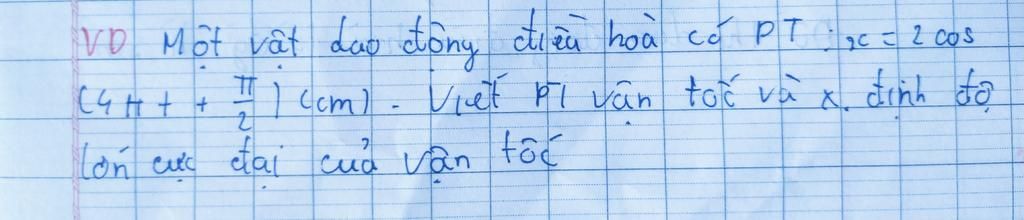 VD Một vật dao động điều hoà có PT : x = 2 cos
(4π t + π/2) (cm) - Viết PT vận tốc và x. định độ
lớn cực đại của vận tốc